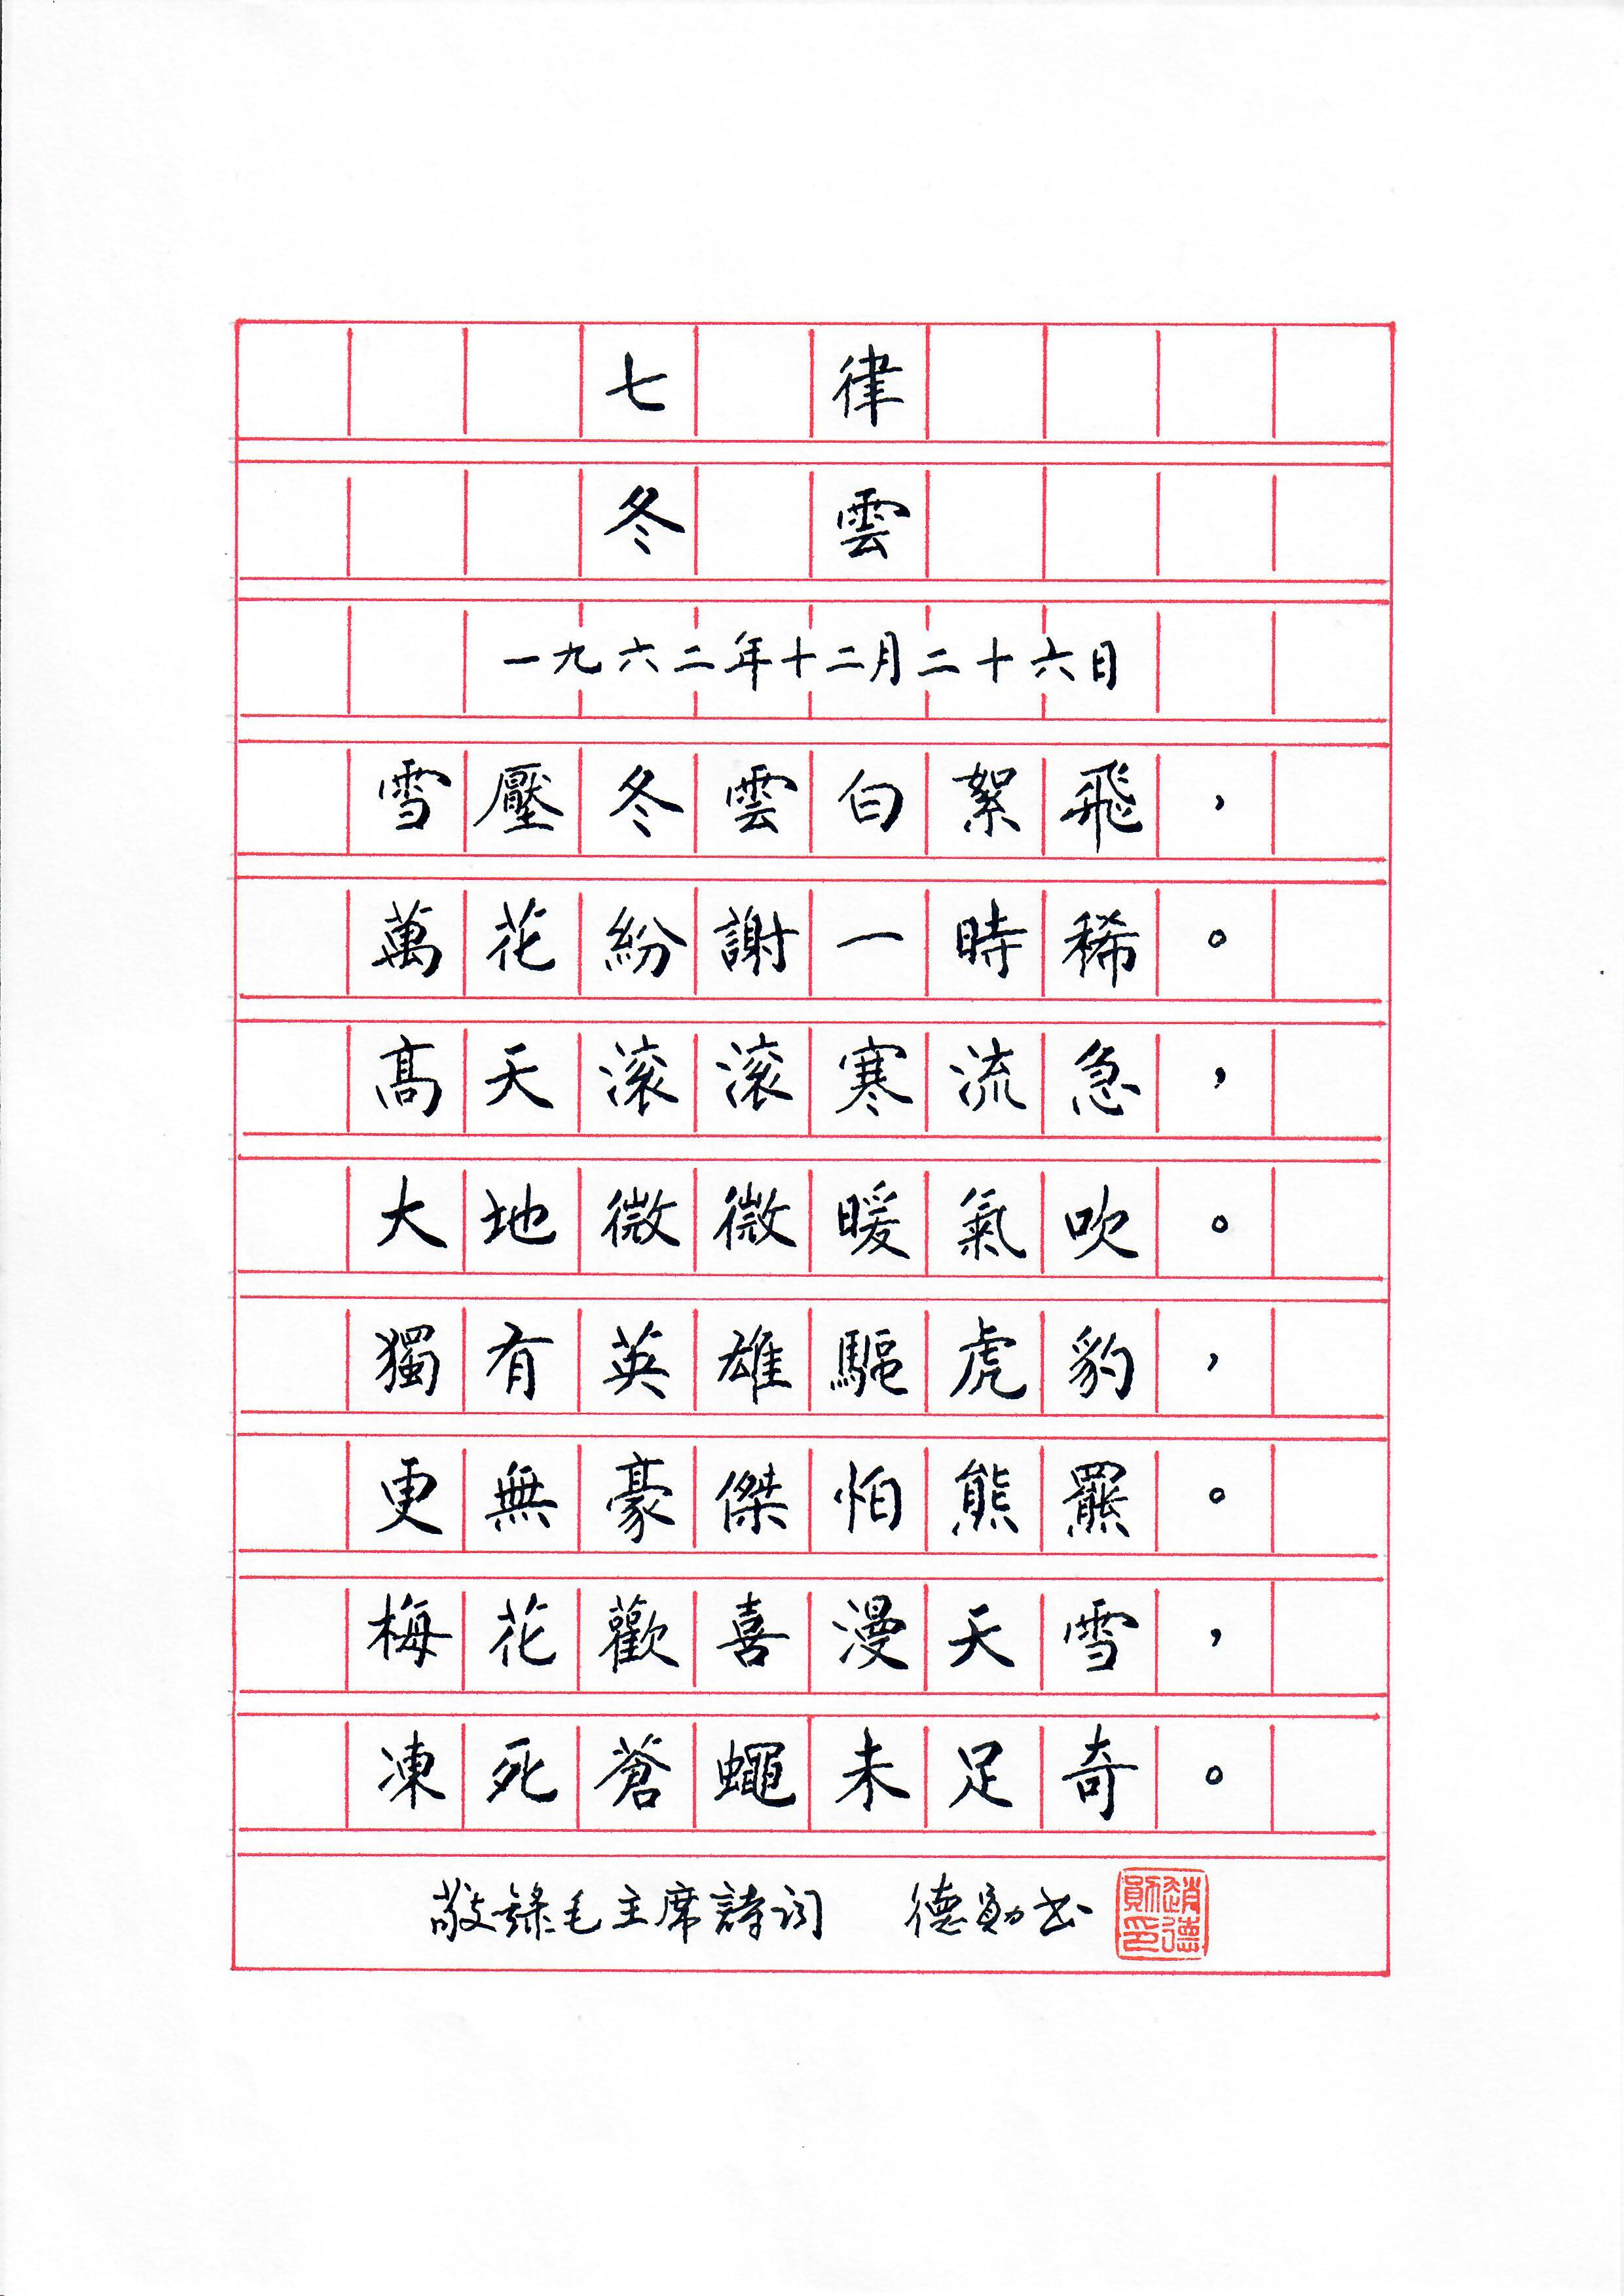 七律
冬雲
一九六二年十二月二十六日
雪壓冬雲白絮飛，
萬花紛謝一時稀。
高天滚滚寒流急，
大地微微暖氣吹。
獨有英雄驅虎豹，
更無豪傑怕熊羆。
梅花歡喜漫天雪，
凍死蒼蠅未足奇。
敬錄毛主席詩詞 德勛书
趙德勛印